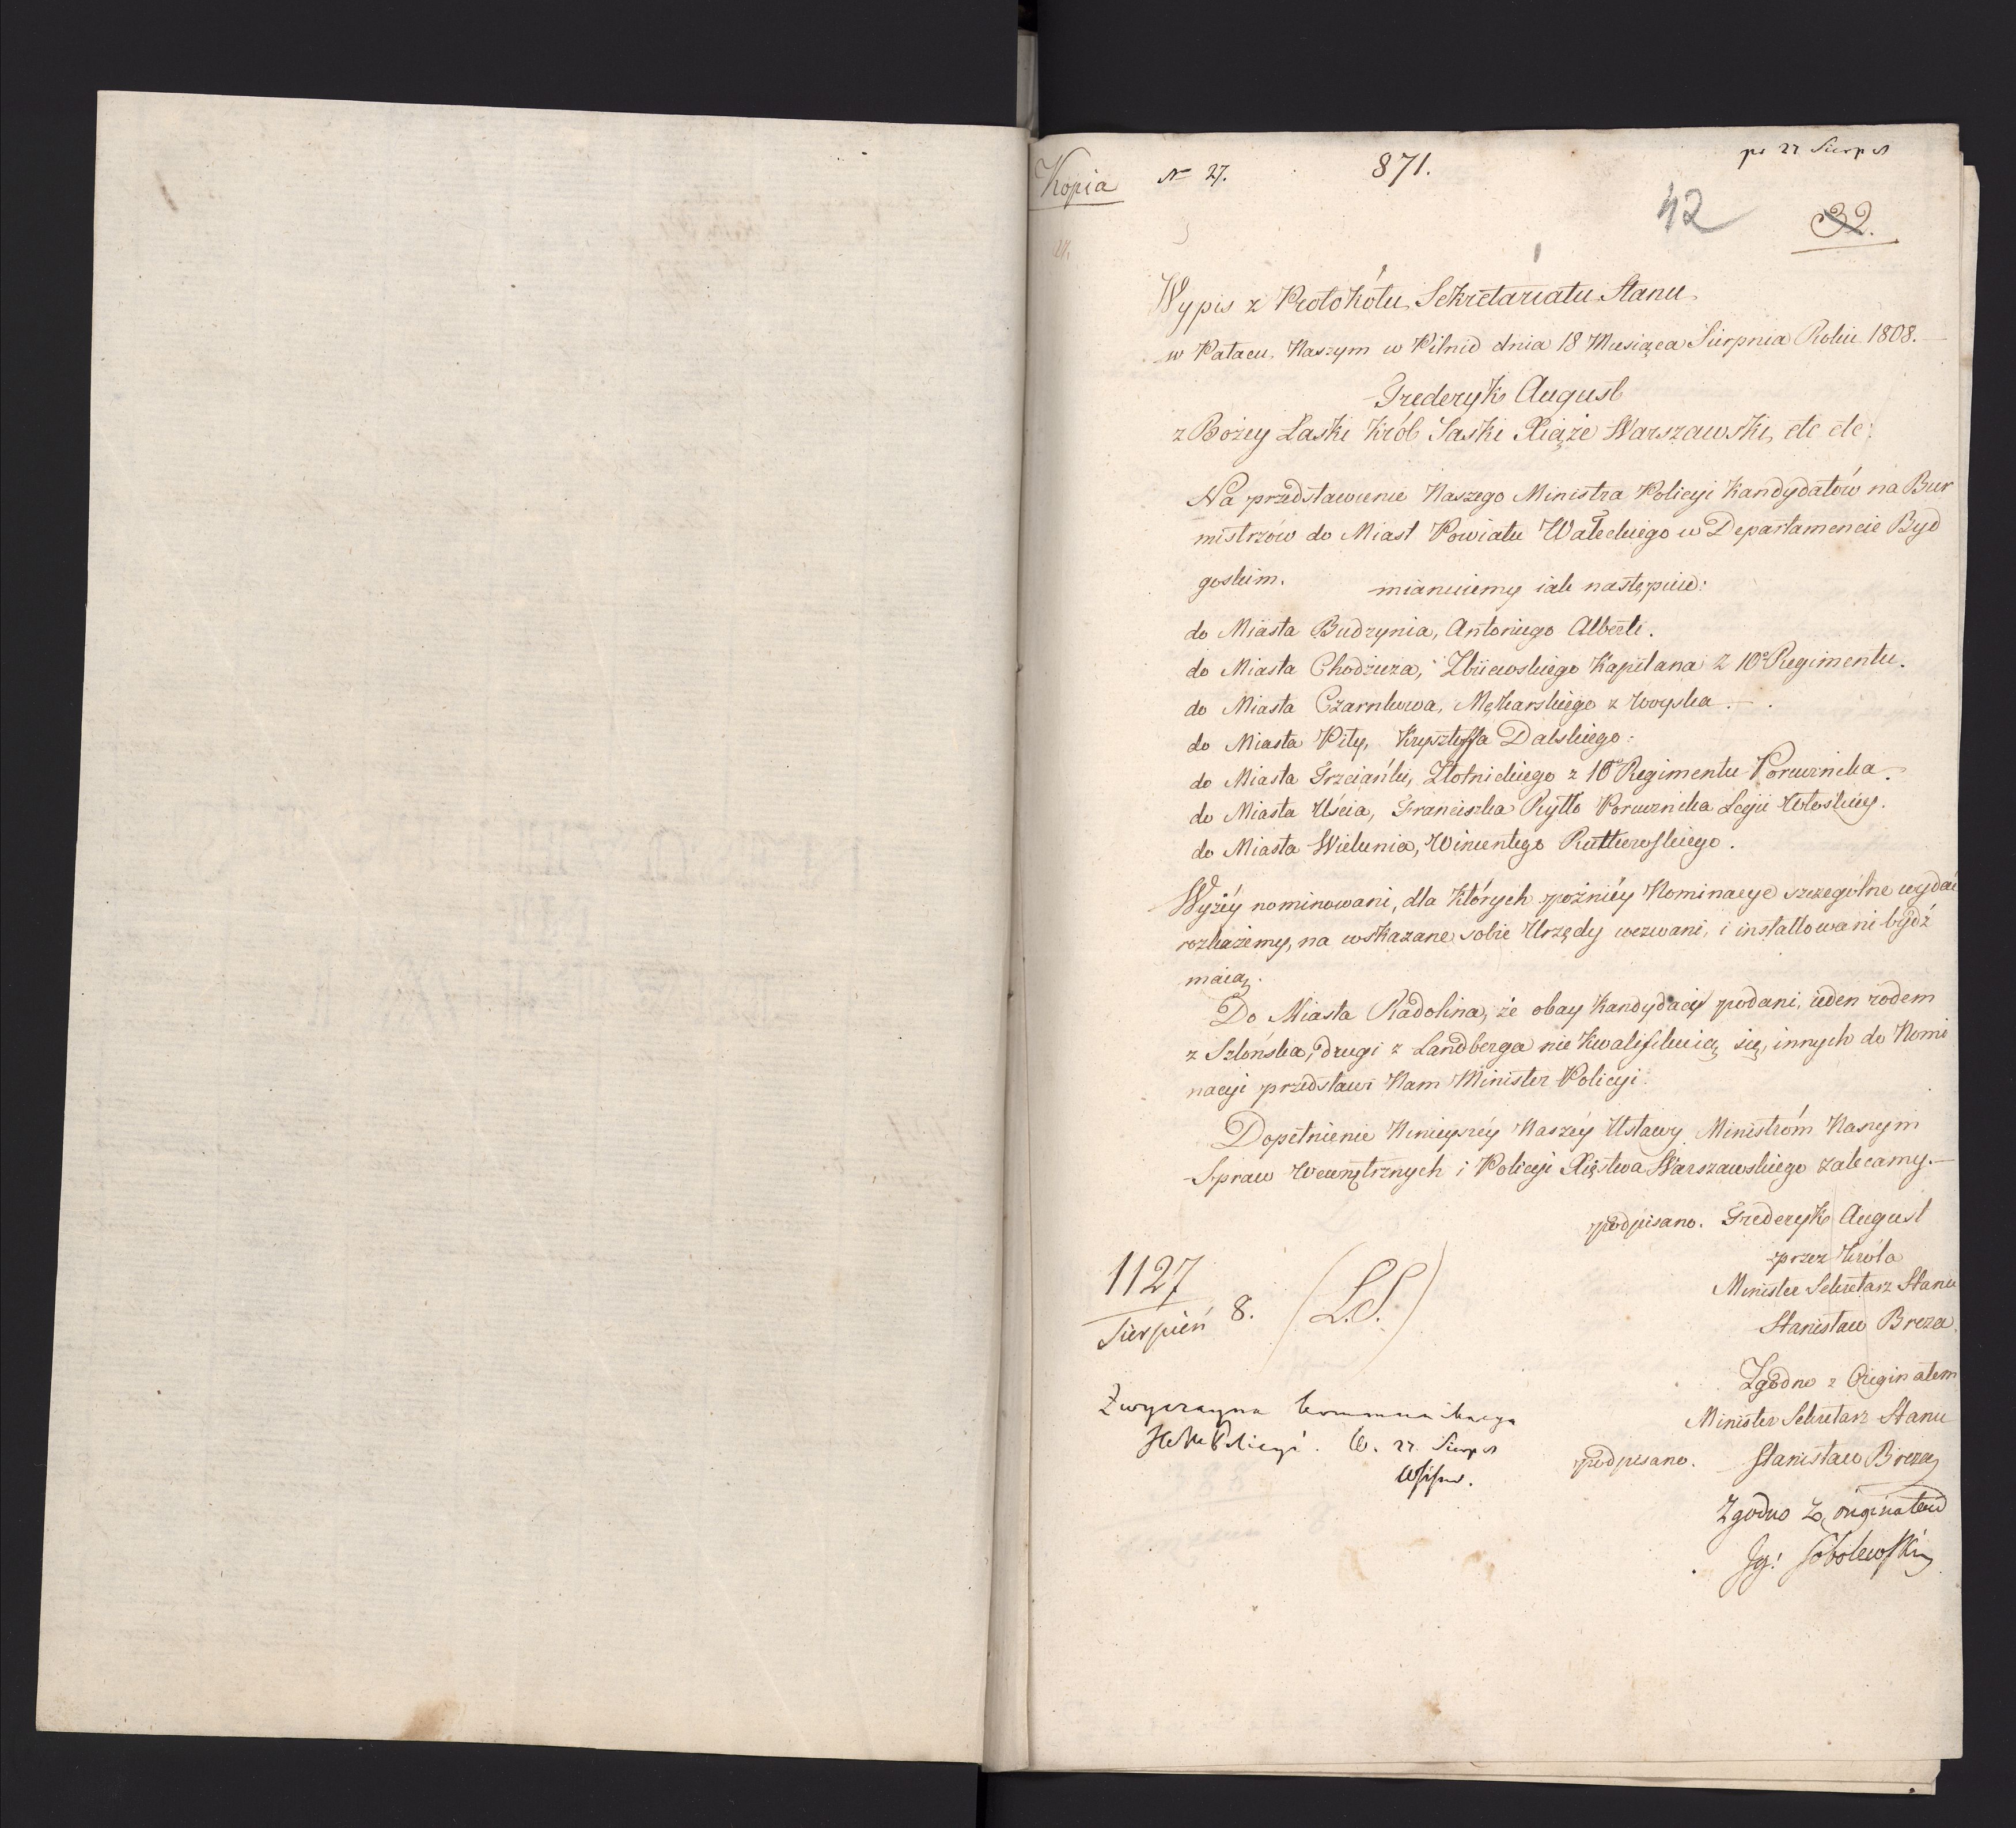 Kopia
N 27.
871.
pr 27 Sierp
42
32.
Wypis z Protokółu Sekretariatu Stanu
w Pałacu Naszym w Pilnic dnia 18 Miesiąca Sierpnia Roku 1808.
Fryderyk August
z Bożey Łaski Król Saski Xiąże Warszawski, etc etc:
Na przedstawienie Naszego Ministra Policyi Kandydatów na Bur
mistrzów do Miast Powiatu Wałeckiego w Departamencie Byd
goskim.
mianuiemy iak następuie:
do Miasta Budzynia, Antoniego Alberti.
do Miasta Chodzieza, Zbiiewskiego Kapitana z 10º Regimentu.
do Miasta Czarnkowa, Mękarskiego z woyska.
do Miasta Piły, Krysztoffa Dalskiego:
do Miasta Trzcianki, Złotnickiego z 10º Regimentu Porucznika.
do Miasta Uścia, Franciszka Ryłło Porucznika Legii Włoskiey.
do Miasta Wielunia, Wincentego Rutkowskiego.
Wyżéy nominowani, dla których późniéy Nominacye szczególne wydać
rozkażemy, na wskazane sobie Urzędy wezwani, i installowani bydź
maią.
Do Miasta Radolina, że obay Kandydaci podani, ieden rodem
z Szlońska, drugi z Landberga nie kwalifikuią się, innych do Nomi
nacyi przedstawi Nam Minister Policyi.
Dopełnienie Ninieyszéy Naszéy Ustawy Ministróm Naszym
Spraw Wewnętrznych i Policyi Xięstwa Warszawskiego zalecamy.
podpisano. Fryderyk August
przez Króla
Minister Sekretarz Stanu
Stanisław Breza
1127
Sierpień 8.
(L.S.)
Zgodno z Originałem
Minister Sekretarz Stanu
podpisano. Stanisław Breza
Zwyczayna kommunikacya
Policyi. 27 Sierp
Zgodno z originałem
Ig: Sobolewski